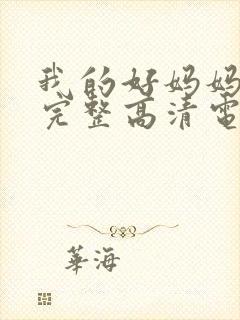 我的好妈妈
完整高清電
華海